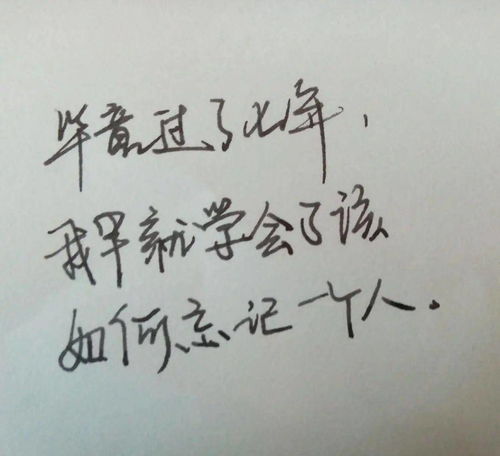 毕竟过了火年，
我早就学会了该
如何忘记一个人．